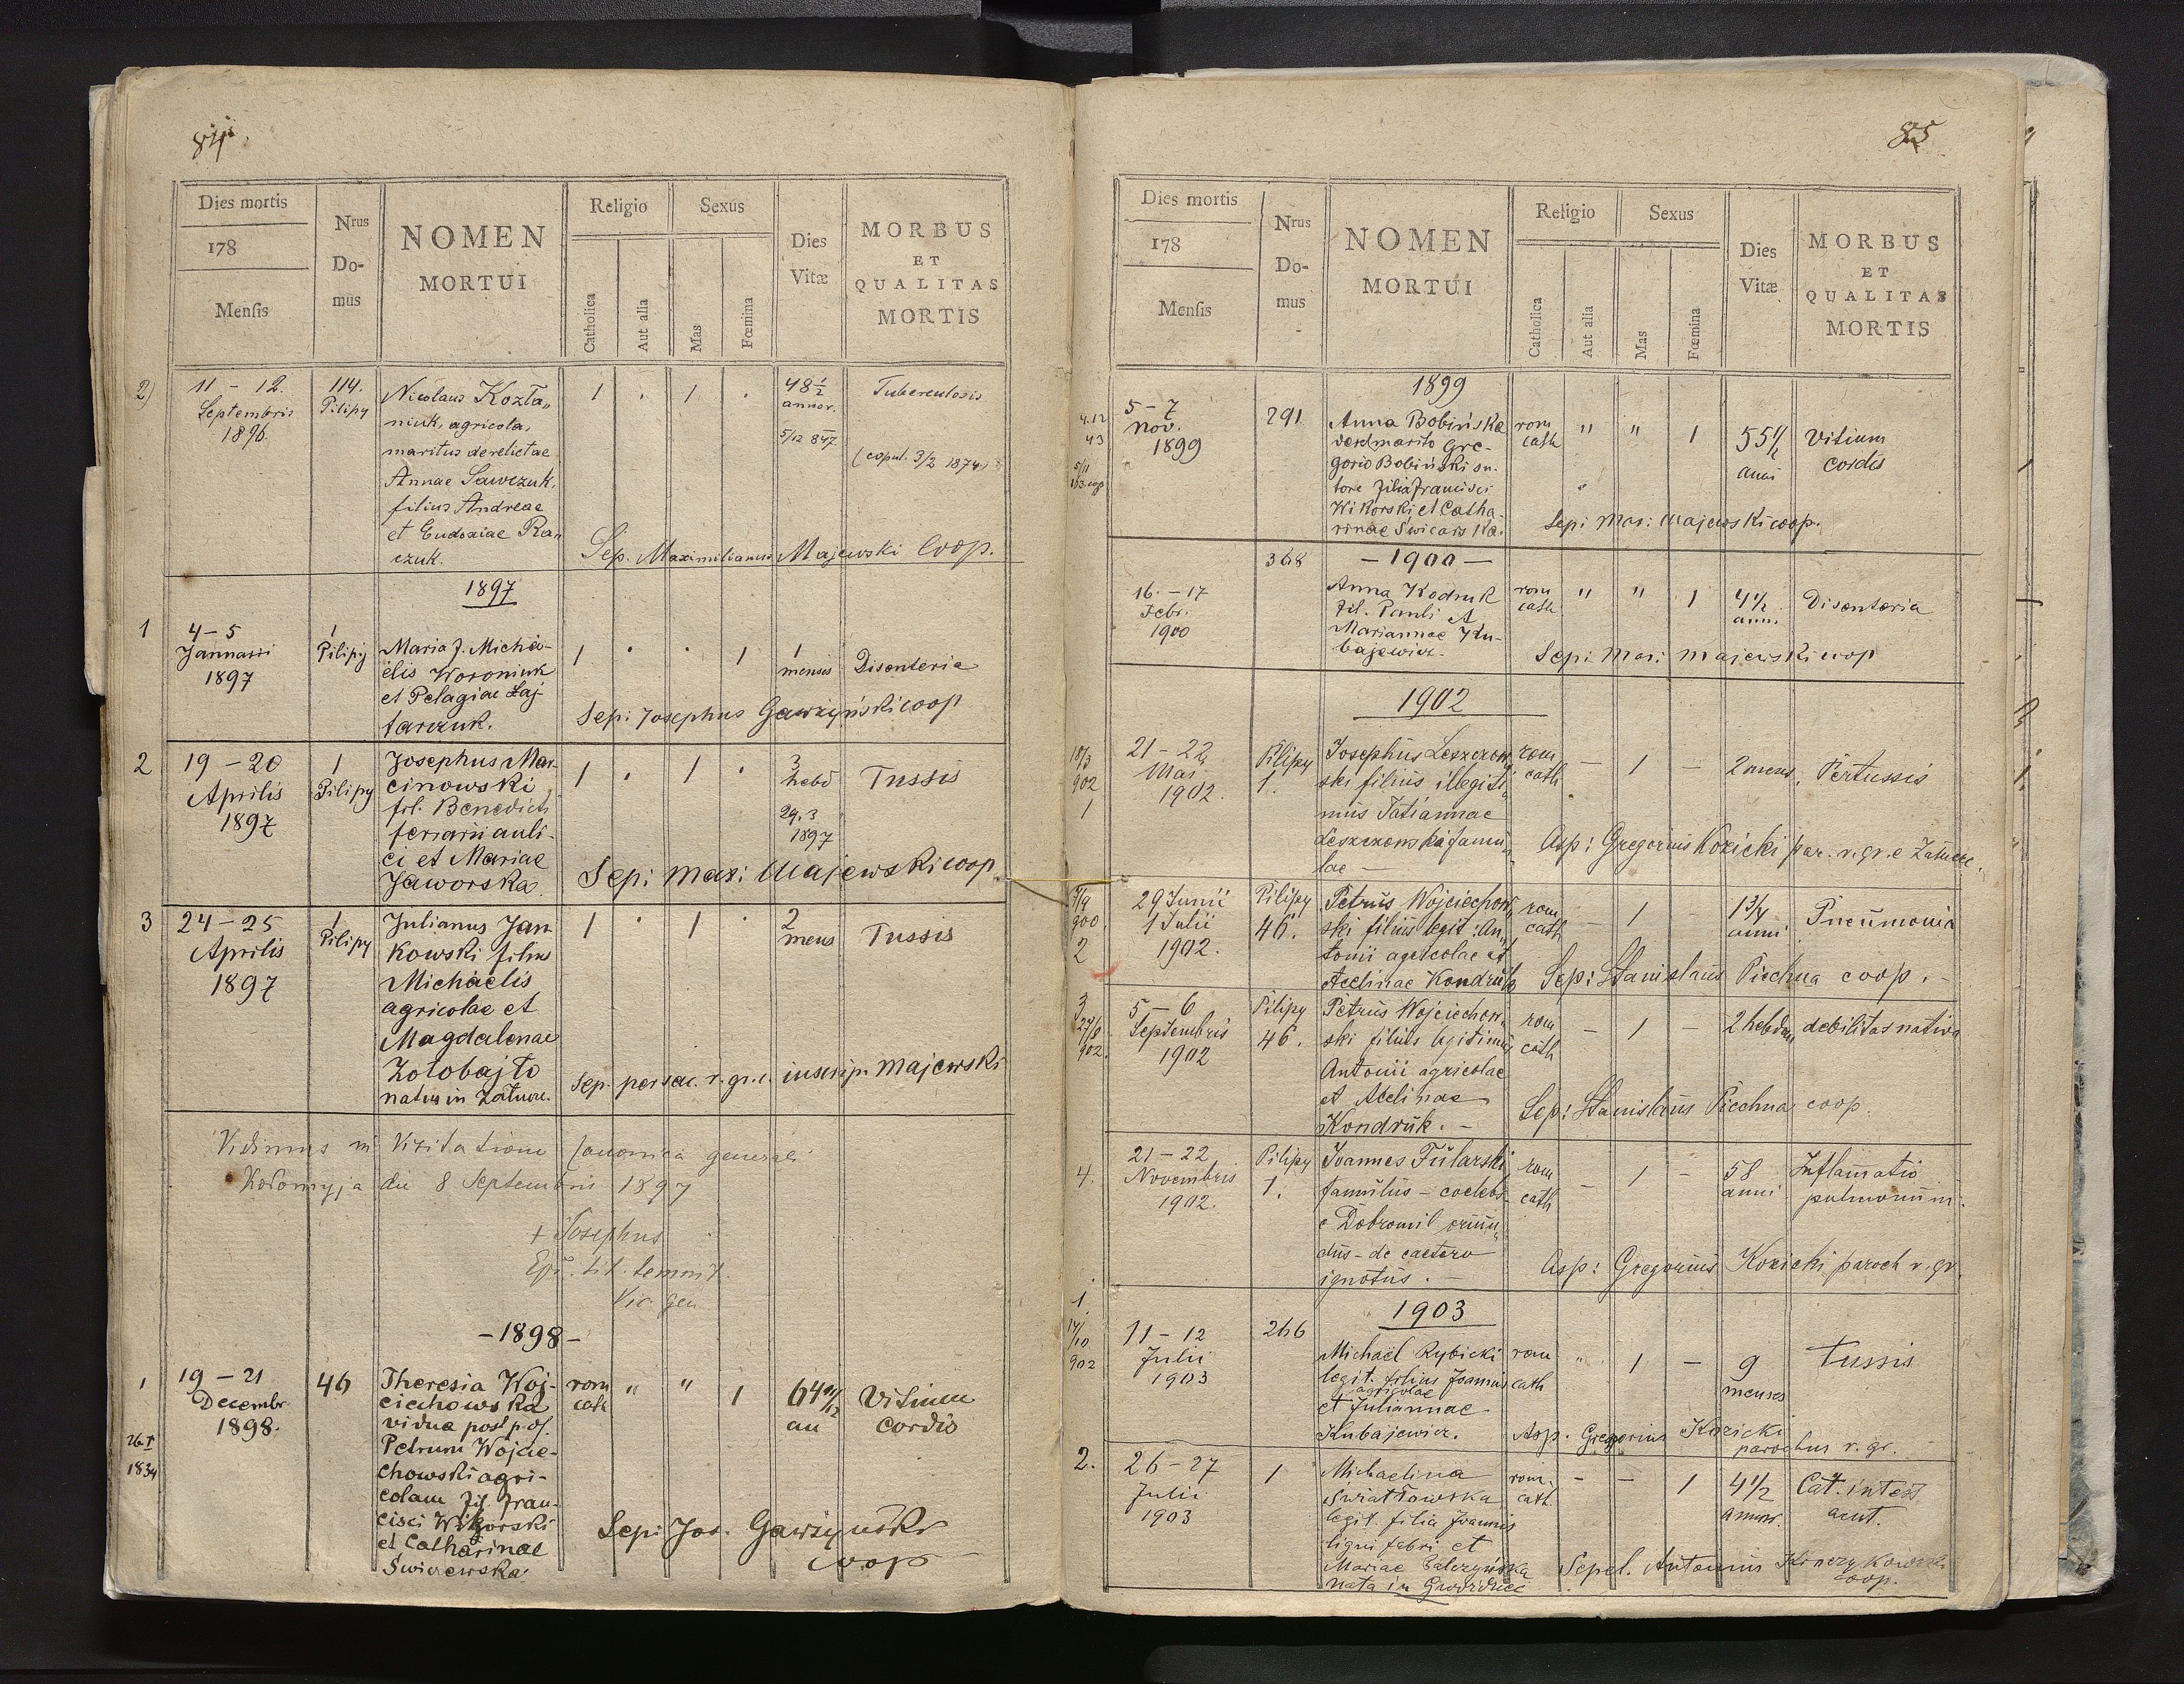 84
Dies mortis
178
Mensis
Nrus
Do-
mus
NOMEN
MORTUI
Religio
Catholica
Aut alia
Sexus
Mas
Fœmina
Dies
Vitæ
MORBUS
ET
QUALITAS
MORTIS
2)
11 - 12.
Septembris
1896.
114.
Pilipy
Nicolaus Kozła„
niuk, agricola,
maritus derelictae
Annae Sawczuk,
filius Andreae
et Eudoxiae Ra„
czuk.
1 . 1 .
48 1/2
annor.
5/12 847
Tuberculosis
(copul. 3/2 1874)
Sep. Maximilianus Majewski Coop.
1897
1
4 - 5
Januarii
1897
1
Pilipy
Maria f. Micha-
elis Woroniuk
et Pelagiae Laj-
tarczuk.
1 . . 1
1
mensis
Disenteria
Sepi Josephus Gawrzyński coop
2
19 - 20
Aprilis
1897
1
Pilipy
Josephus Mar-
cinowski
fil. Benedicti
ferarii auli-
ci et Mariae
Jaworska
1 . 1 .
3
hebd
29.3
1897
Tussis
Sepi Maxi Majewski coop
3
24 - 25
Aprilis
1897
1
Pilipy
Julianus Jan
kowski filius
Michaelis
agricolae et
Magdalenae
Zołobajto
natus in Zatucze.
1 1
2
mens
Tussis
Sep. per sac. r. gr. c. inscrip. Majewski
Vidimus in Visitatione Canonica generali
Kołomyja die 8 Septembris 1897
+ Josephus
Epi. tit. temnit.
Vic. gen
- 1898 -
1
26.I
1834
19 - 21
Decembr
1898.
46
Theresia Woj-
ciechowska
vidua post p. def.
Petrum Wojcie-
chowski agri-
colam fil. Fran-
cisci Wikorski
et Catharinae
Swierewska
rom
cath
" " 1
64 11/12
an
Vitium
cordis
Sepi Jos. Gawrzyński
coop
85
Dies mortis
178
Mensis
Nrus
Do-
mus
NOMEN
MORTUI
Religio
Catholica
Aut alia
Sexus
Mas
Fœmina
Dies
Vitæ
MORBUS
ET
QUALITAS
MORTIS
1899
4.12
43
5 - 7
nov.
1899
291
Anna Bobińska
marito Gre-
gorio Bobiński su-
tore filia Francisci
Wikorski et Catha-
rinae Swicarska.
rom
cath
" " 1
55 1/2
anni
Vitium
cordis
Sepi Max: Majewski coop.
- 1900 -
368
16. - 17
Febr.
1900
Anna Kodruk
fil. Pauli et
Mariannae Ku-
bajewicz.
rom
cath
" " 1
4 1/2
anni
Disenteria
Sepi Maxi Majewski coop
1902
18/3
902
1
21 - 22
Mai
1902.
Pilipy
1.
Josephus Leszczow„
ski filius illegiti„
mus Tatiannae
Leszczowska famu„
lae -
rom
cath
- 1 -
2 mens.
Pertussis
Asp: Gregorius Kozicki par. r. gr. e Zatucze.
900
2
29 Junii
1 Julii
1902.
Pilipy
46.
Petrus Wojciechow„
ski filius legit: An„
tonii agricolae et
Acelinae Kondruk
rom
cath
- 1 -
1 3/4
anni
Pneumonia
Sep: Stanislaus Piechna coop. -
3
27/8
902.
5 - 6
Septembris
1902
Pilipy
46.
Petrus Wojciechow„
ski filius legitimus
Antonii agricolae
et Acelinae
Kondruk. -
rom
cath
- 1 -
2 hebdm
debilitas nativa
Sep: Stanislaus Piechna coop.
4.
21 - 22
Novembris
1902.
Pilipy
1.
Joannes Fularski
famulus - coelebs
e Dobromil oriun„
dus - de caetero
ignotus. -
rom
cath
- 1 -
58
anni
Inflamatio
pulmonum.
Asp: Gregorius Kozicki paroch r. gr.
1903
1.
17/10
902
11 - 12
Julii
1903
266
Michaël Rybicki
legit. filius Joannis
agricolae
et Juliannae
Kubajewicz.
rom
cath
" 1 -
9
menses
tussis
Asp. Gregorius Kozicki
parochus r. gr.
2.
26 - 27
Julii
1903
1
Michaelina
Swiatłowska
legit. filia Joannis
ligni fabri et
Mariae Balczyńska
nata in
rom.
cath.
- - 1
4 1/2
annor.
Cat. intest
acut.
Sepel. Antonius
coop.